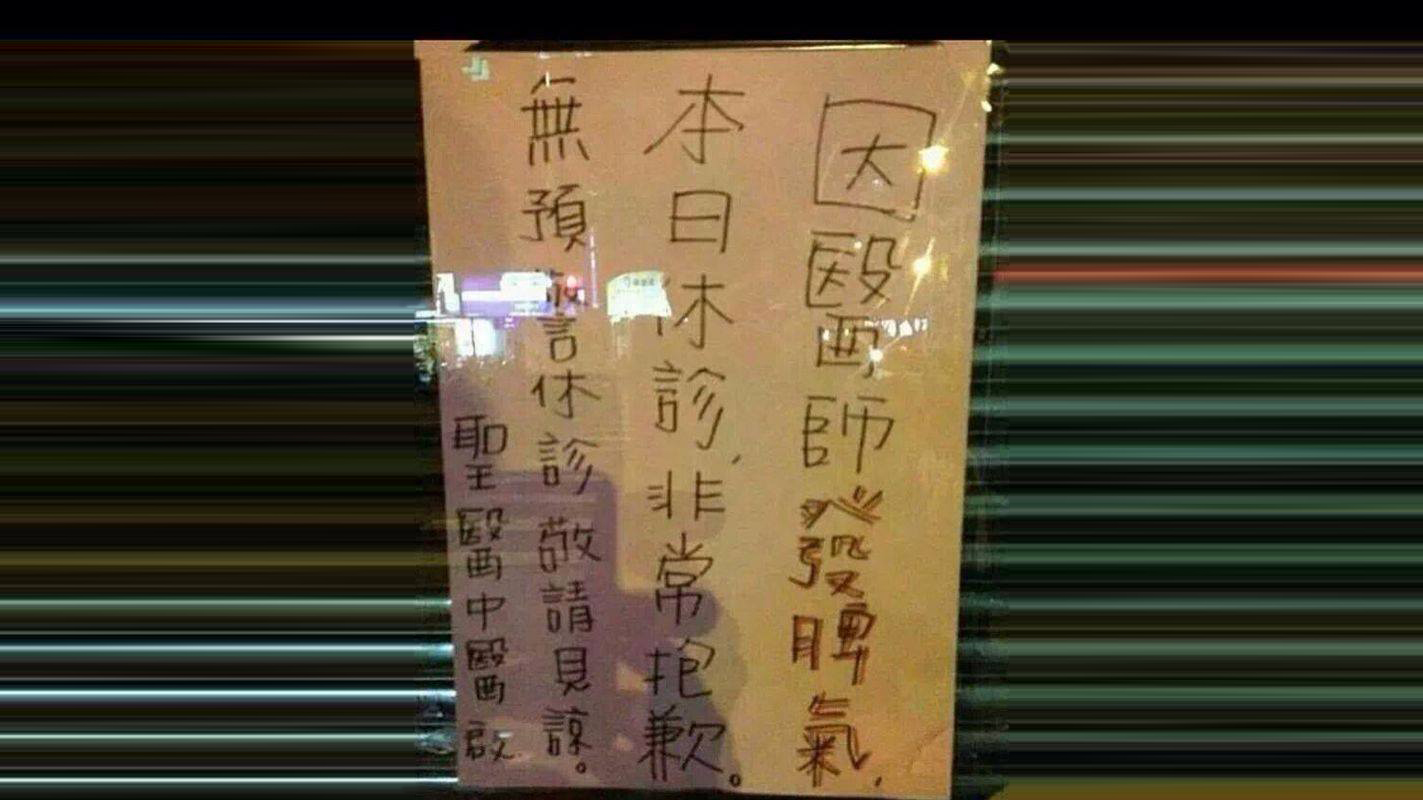 因醫師發脾氣,
本日休診,非常抱歉。
無預警休診敬請見諒。
聖醫中醫啟